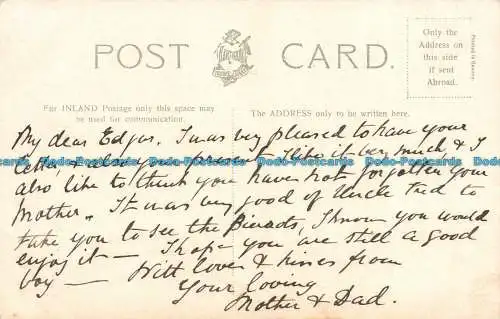 POST CARD.
Only the
Address on
this side
if sent
Abroad.
For INLAND Postage only this space may
be used for communication.
The ADDRESS only to be written here.
My dear Edgar. I was very pleased to have your
letter, & also your present. I like it very much & I
also like to think you have not forgotten your
Mother. It was very good of Uncle Ted to
take you to see the Pirates, I know you would
enjoy it — I hope you are still a good
boy — With love & kisses from
Your loving
Mother & Dad.